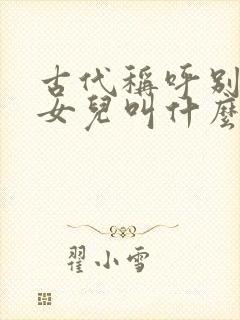 古代稱呼別
女兒叫什麼
翟小雪